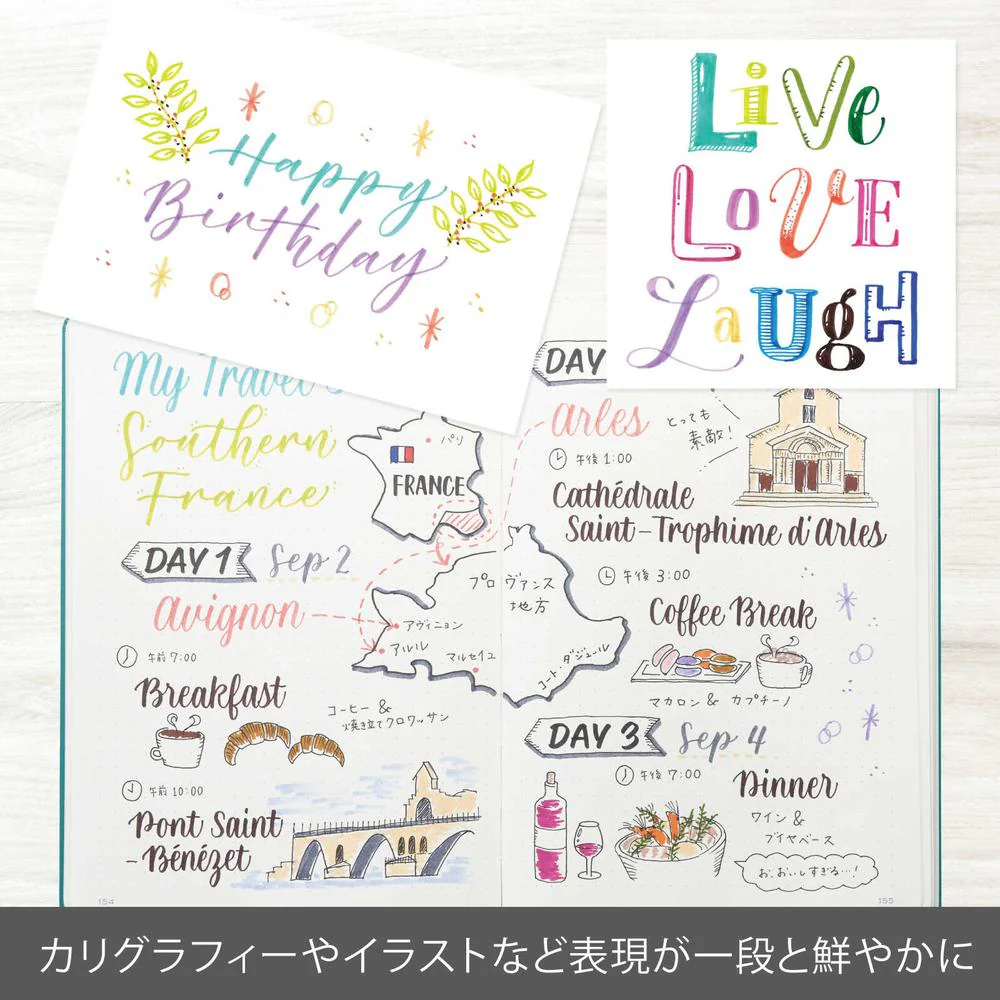 Happy
Birthday
LiVe
LoVE
LaUgH
My Travel
Southern
France
パリ
FRANCE
DAY 1 Sep 2
avignon
午前 7:00
Breakfast
コーヒー &
焼き立てクロワッサン
午前 10:00
Pont Saint
-Bénézet
プロヴァンス
地方
アヴィニョン
アルル
マルセイユ
コート・ダジュール
DAY
arles
とっても
素敵!
午後 1:00
Cathédrale
Saint-Trophime d'Arles
午後 3:00
Coffee Break
マカロン & カプチーノ
DAY 3 Sep 4
午後 7:00
Dinner
ワイン &
ブイヤベース
お、おいしすぎる…!
154
155
カリグラフィーやイラストなど表現が一段と鮮やかに